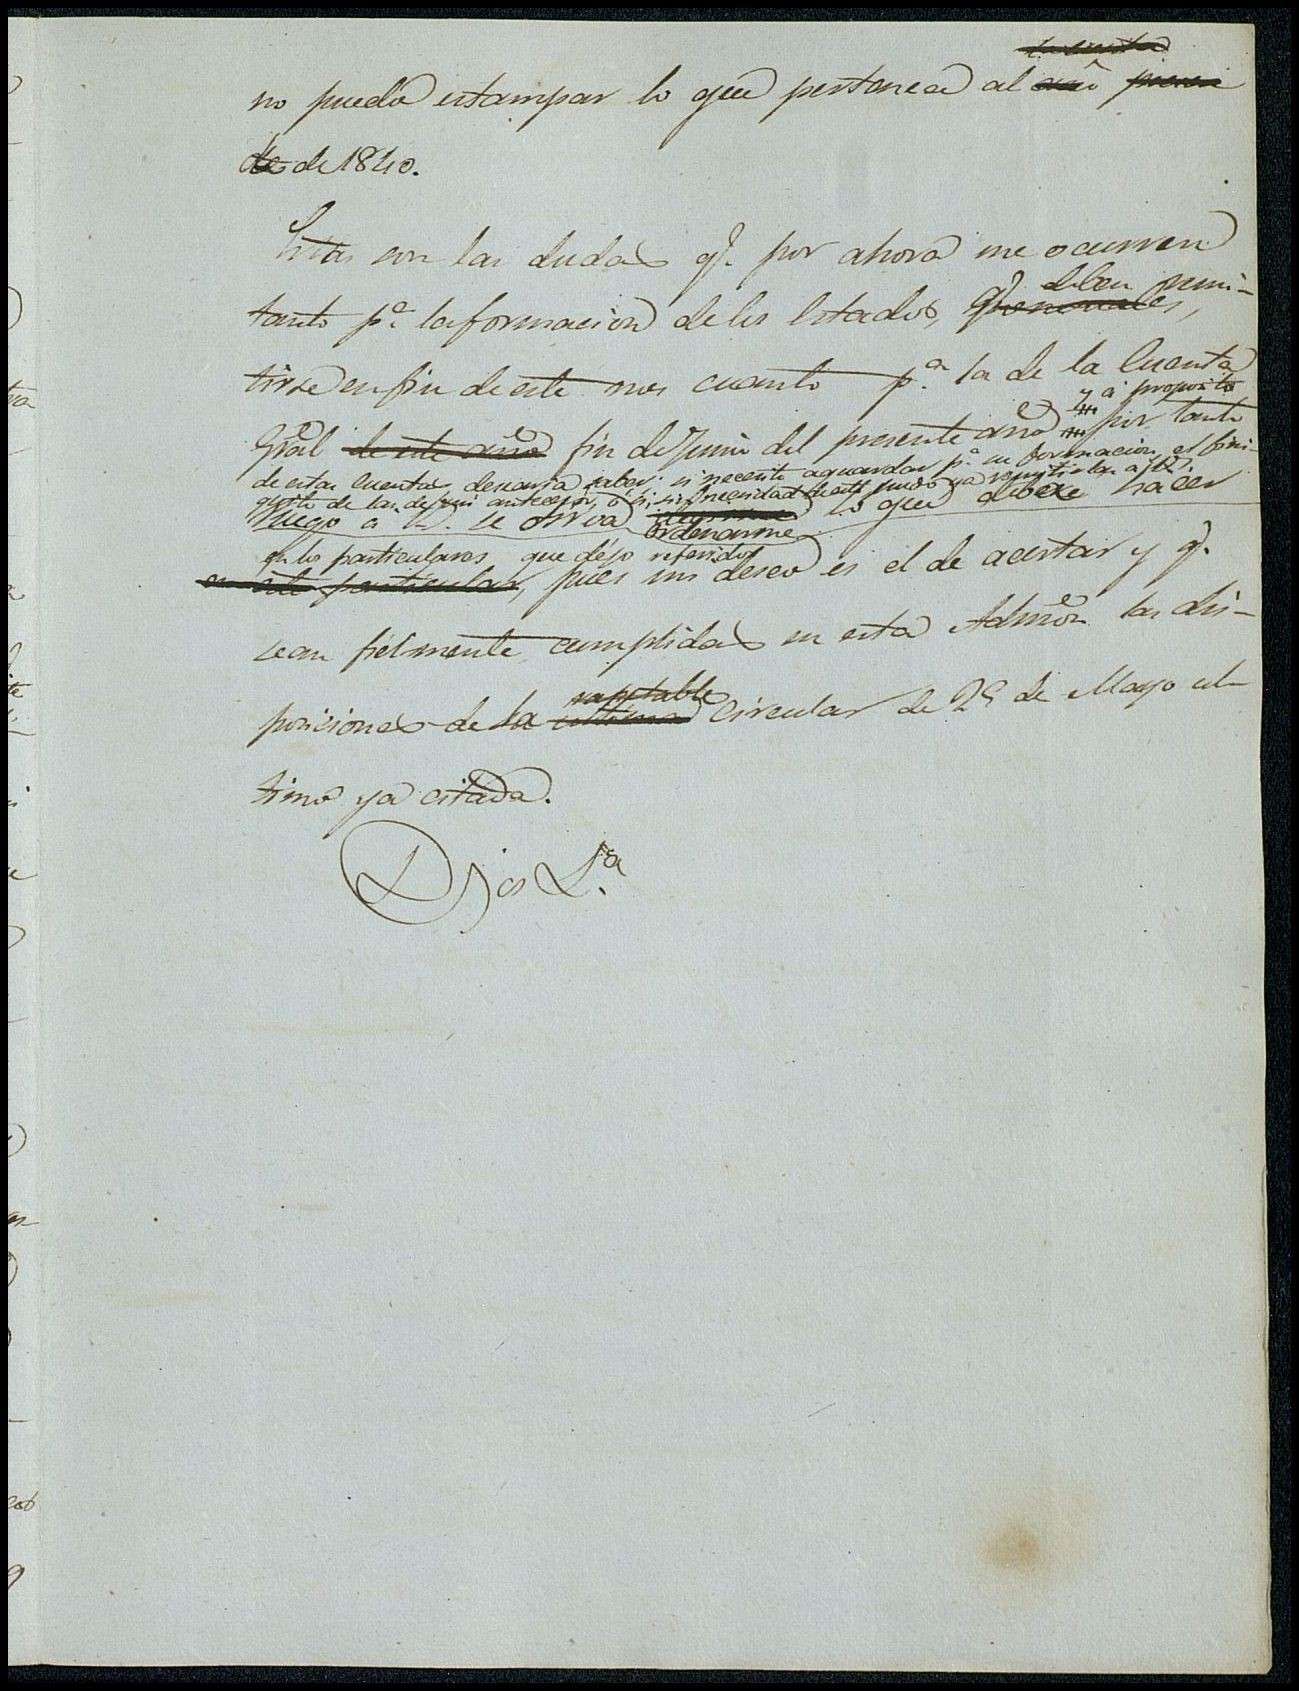 no puedo estampar lo que pertenece al año
de de 1840.
Estas son las dudas q.e por ahora me ocurren
tanto p.a la formacion de los Estados, generales, q.e deben remi-
tirse en fin de este mes cuanto p.a la de la Cuenta
Gral de este año fin de Junio del presente año y á proposito
de estas Cuentas desearia saber: si necesito aguardar p.a su formacion el fini-
quito de las de mi antecesor, ó si sin necesidad de este puedo ya remitirlas á V. por tanto
Ruego a V. se sirva ordenarme lo que deberé hacer
en los particulares que dejo referidos
en este particular, pues mi deseo es el de acertar y q.e
sean fielmente cumplidas en esta Admon las dis-
posiciones de la respetable ultima Circular de 25 de Mayo ul-
timo ya citada.
Dios L.a